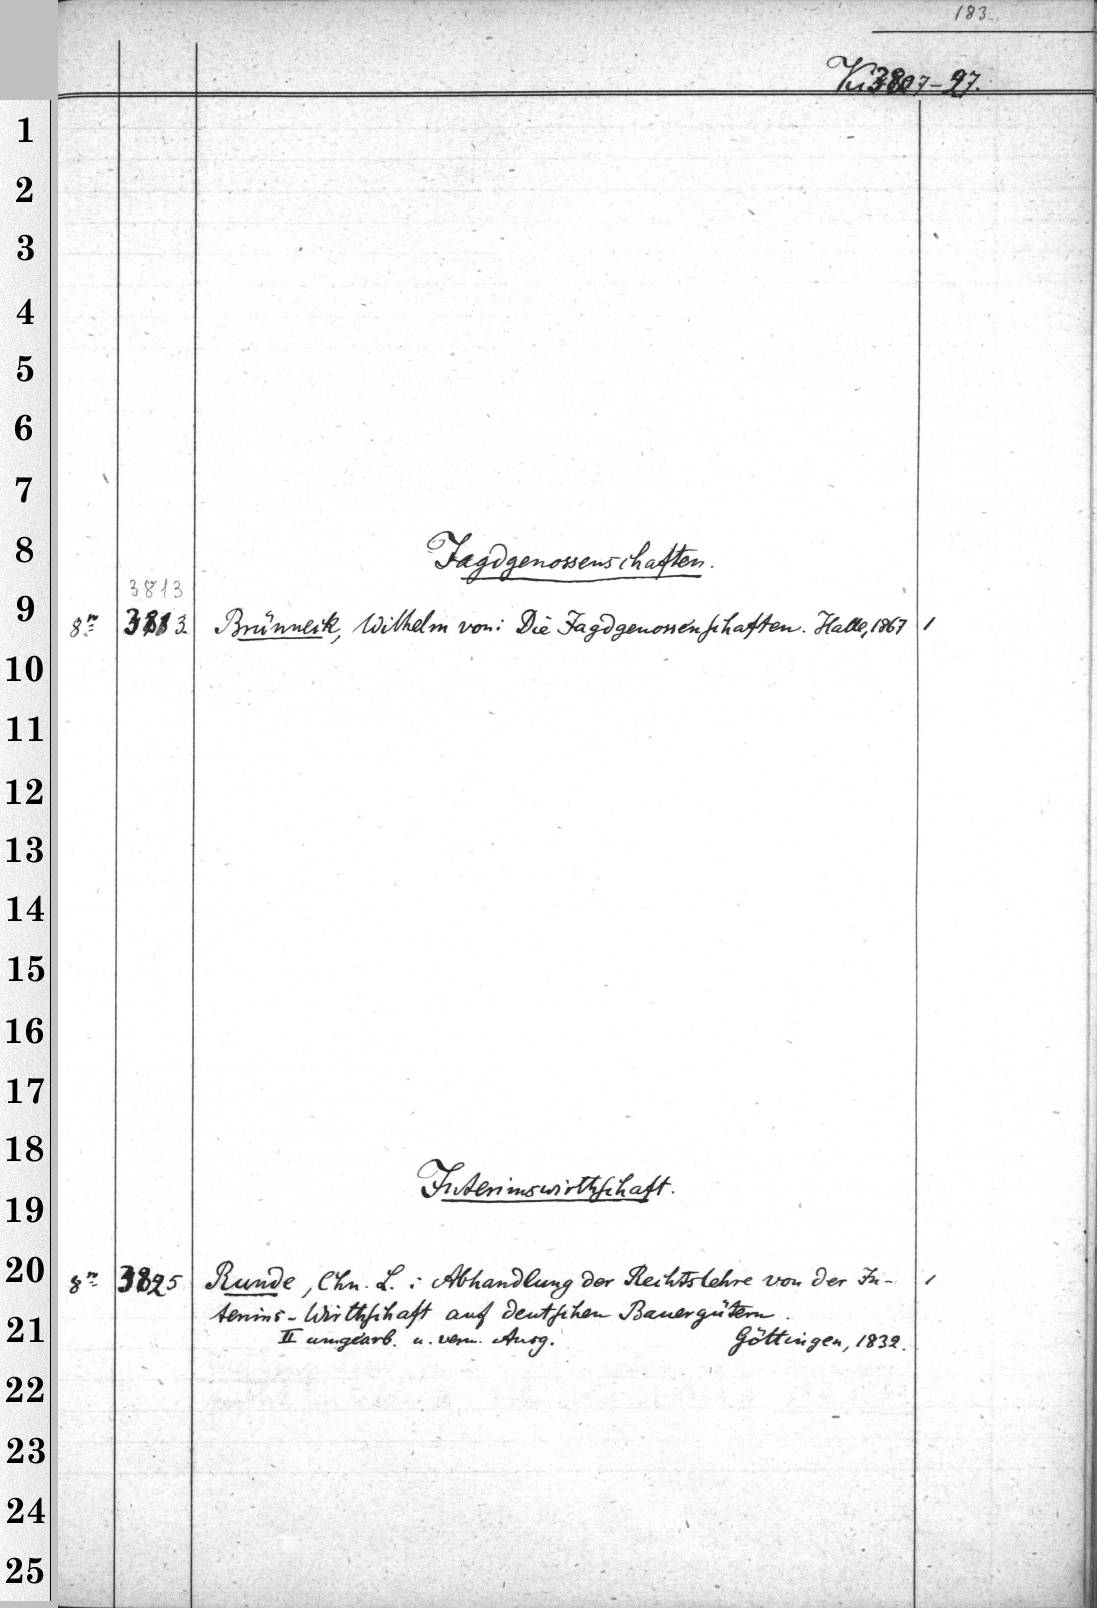 183.
Ku 3807-27.
1
2
3
4
5
6
7
8
Jagdgenossenschaften.
3813
9
8º 3813 Brünneck, Wilhelm von: Die Jagdgenossenschaften. Halle, 1867 1
10
11
12
13
14
15
16
17
18
Interimswirthschaft.
19
20
8º 3825 Runde, Chn. L.: Abhandlung der Rechtslehre von der In- 1
terims-Wirthschaft auf deutschen Bauergütern.
21
II umgearb. u. verm. Ausg. Göttingen, 1832.
22
23
24
25